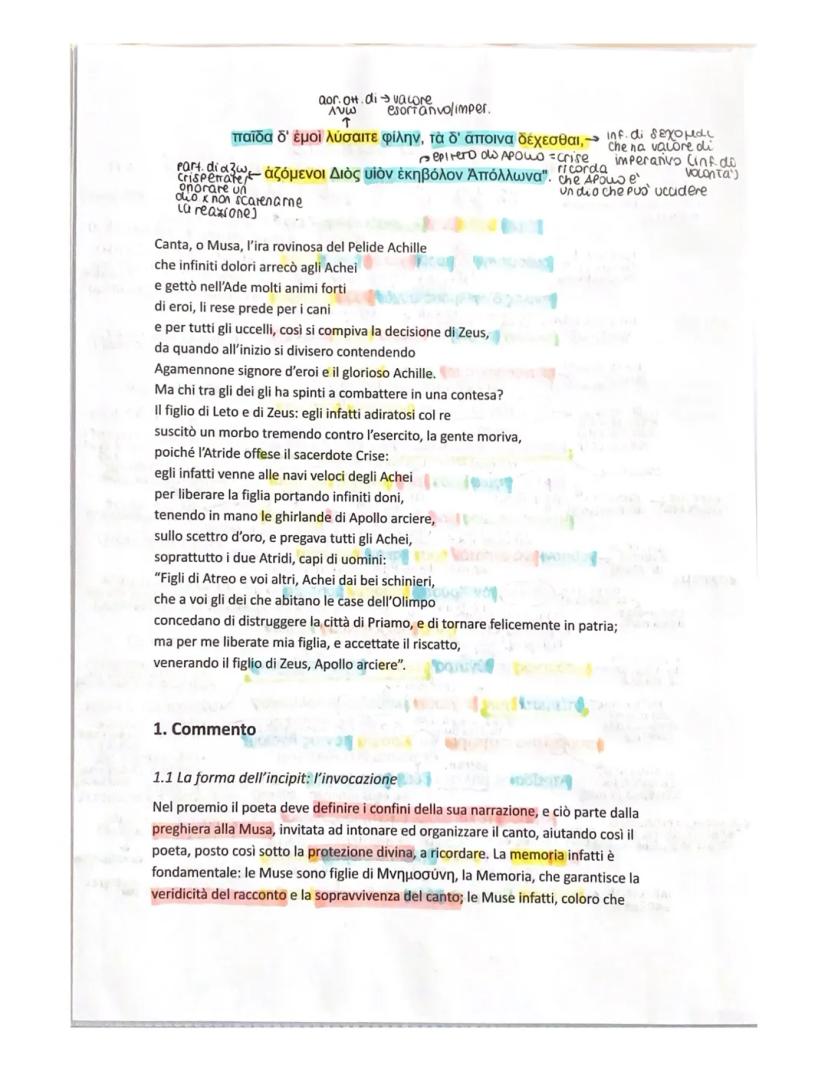 aor. ott. di → valore
λύω esortativo/imper.
↑
παῖδα δ' ἐμοὶ λύσαιτε φίλην, τὰ δ' ἄποινα δέχεσθαι, → inf. di δέχομαι
che ha valore di
imperativo (inf. di
volontà)
→ epiteto di Apollo = Crise
ricorda
che Apollo è
un dio che può uccidere
part. di ἅζω ← ἁζόμενοι Διὸς υἱὸν ἑκηβόλον Ἀπόλλωνα".
(rispettate/
onorare un
dio x non scatenarne
la reazione)
Canta, o Musa, l'ira rovinosa del Pelide Achille
che infiniti dolori arrecò agli Achei
e gettò nell'Ade molti animi forti
di eroi, li rese prede per i cani
e per tutti gli uccelli, così si compiva la decisione di Zeus,
da quando all'inizio si divisero contendendo
Agamennone signore d'eroi e il glorioso Achille.
Ma chi tra gli dei gli ha spinti a combattere in una contesa?
Il figlio di Leto e di Zeus: egli infatti adiratosi col re
suscitò un morbo tremendo contro l'esercito, la gente moriva,
poiché l'Atride offese il sacerdote Crise:
egli infatti venne alle navi veloci degli Achei
per liberare la figlia portando infiniti doni,
tenendo in mano le ghirlande di Apollo arciere,
sullo scettro d'oro, e pregava tutti gli Achei,
soprattutto i due Atridi, capi di uomini:
"Figli di Atreo e voi altri, Achei dai bei schinieri,
che a voi gli dei che abitano le case dell'Olimpo
concedano di distruggere la città di Priamo, e di tornare felicemente in patria;
ma per me liberate mia figlia, e accettate il riscatto,
venerando il figlio di Zeus, Apollo arciere".
1. Commento
1.1 La forma dell'incipit: l'invocazione
Nel proemio il poeta deve definire i confini della sua narrazione, e ciò parte dalla
preghiera alla Musa, invitata ad intonare ed organizzare il canto, aiutando così il
poeta, posto così sotto la protezione divina, a ricordare. La memoria infatti è
fondamentale: le Muse sono figlie di Μνημοσύνη, la Memoria, che garantisce la
veridicità del racconto e la sopravvivenza del canto; le Muse infatti, coloro che